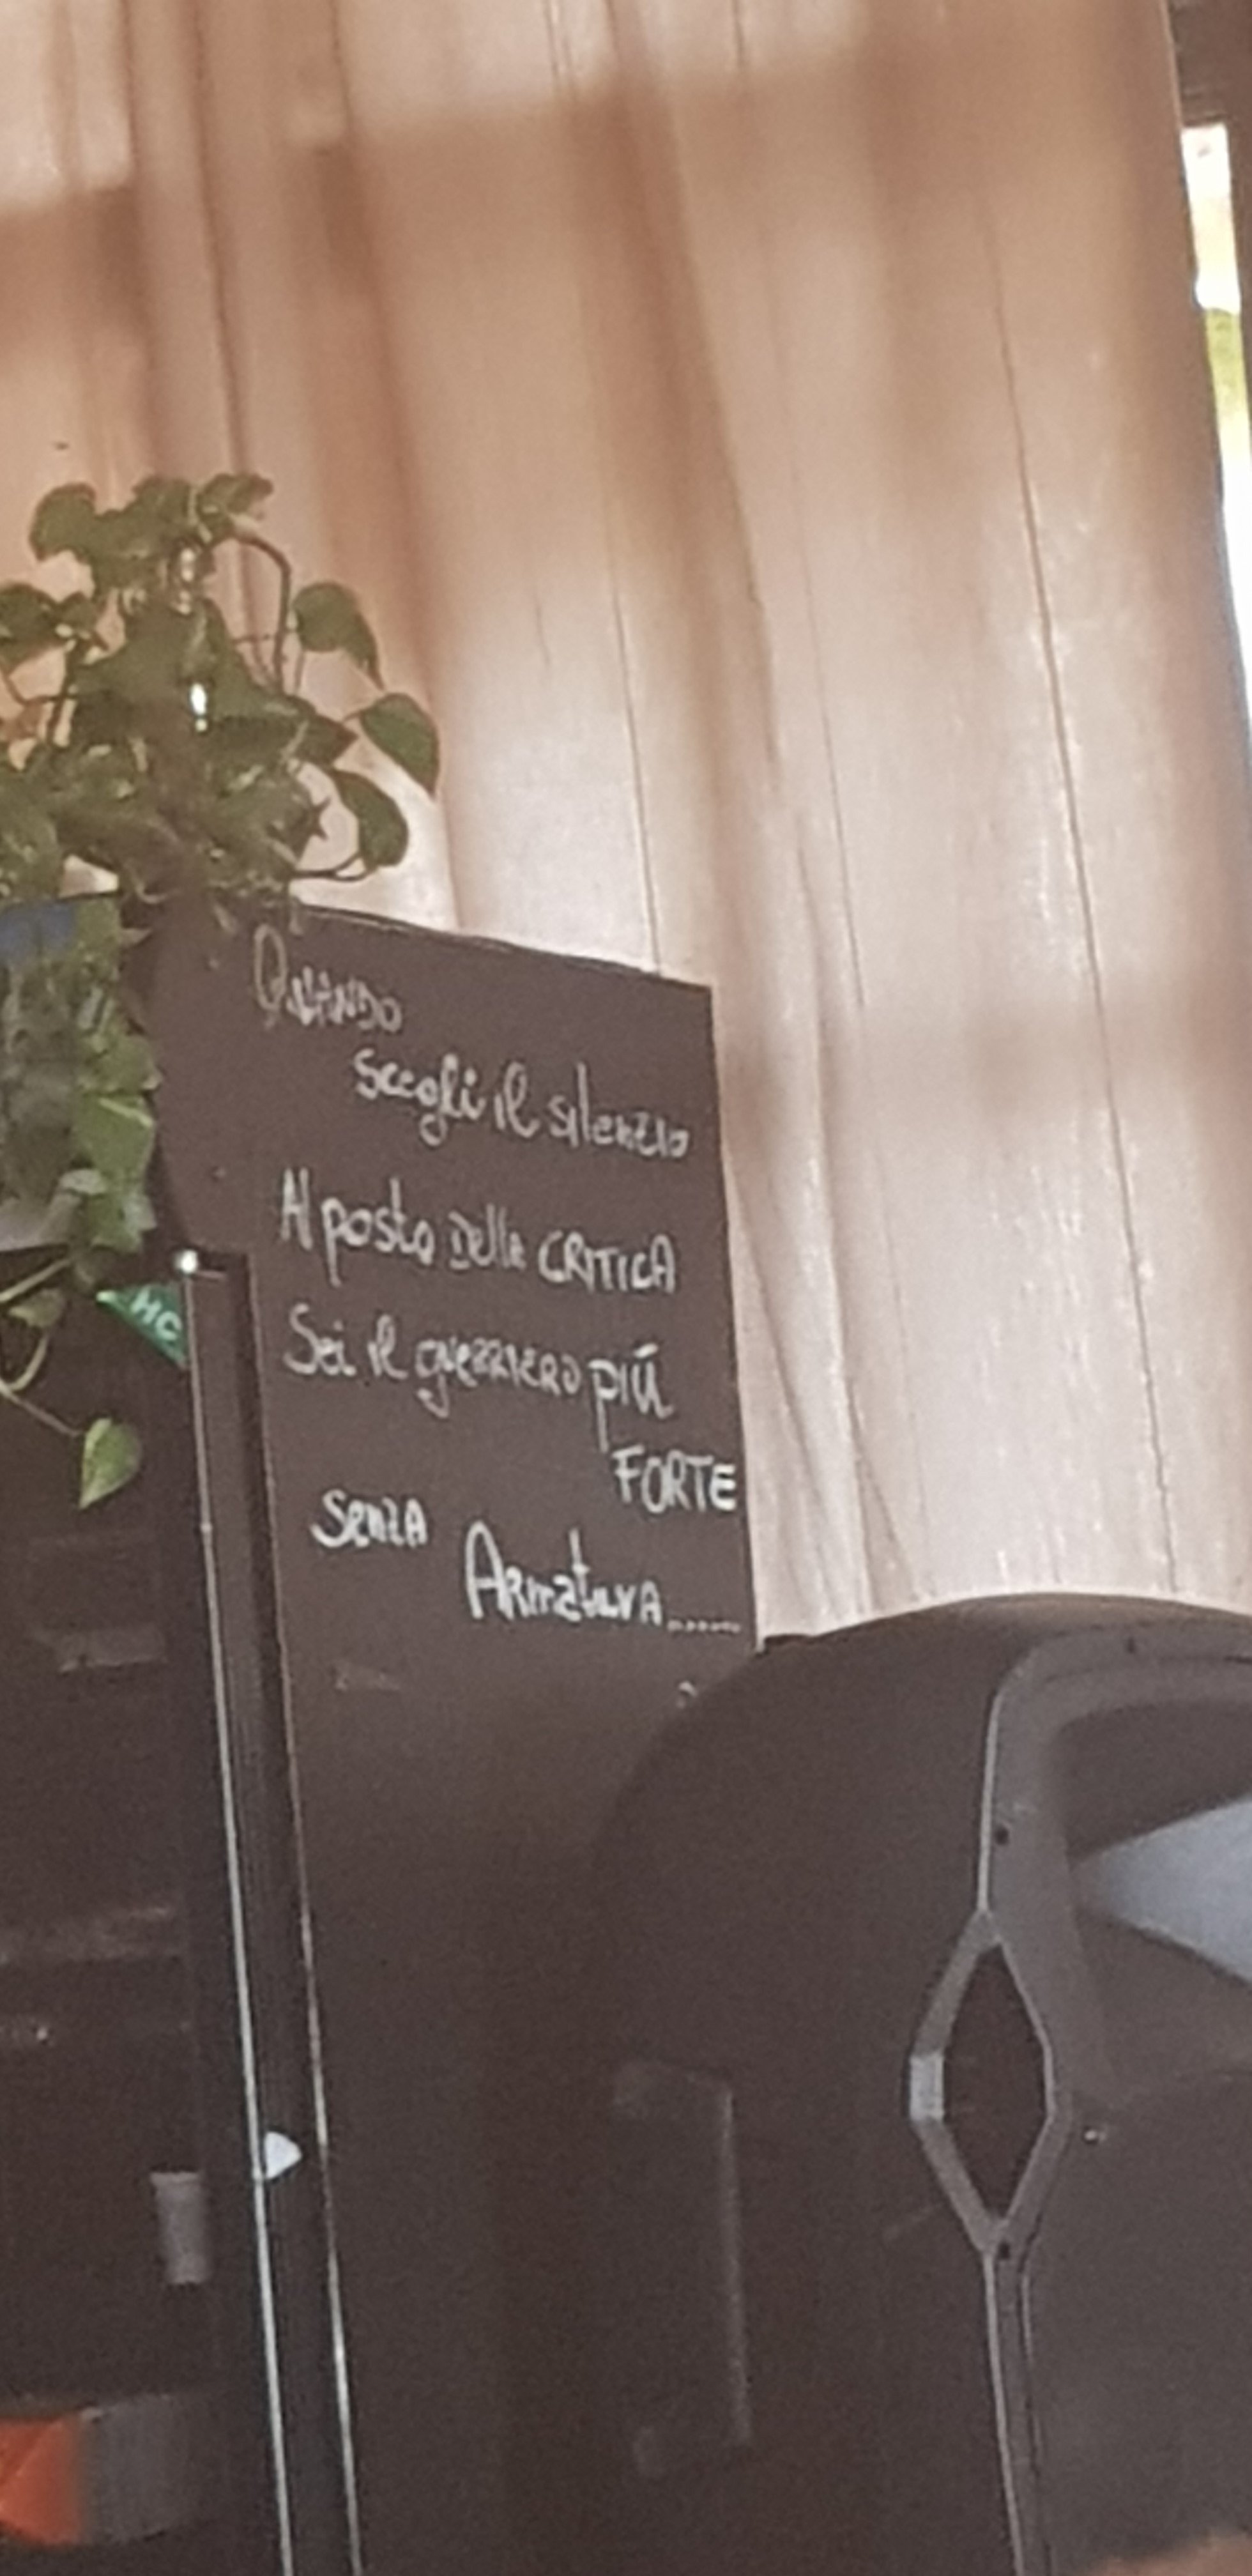 QUANDO
Scegli il silenzio
Al posto Della CRITICA
Sei il guerriero più
FORTE
Senza
Armatura......
HC